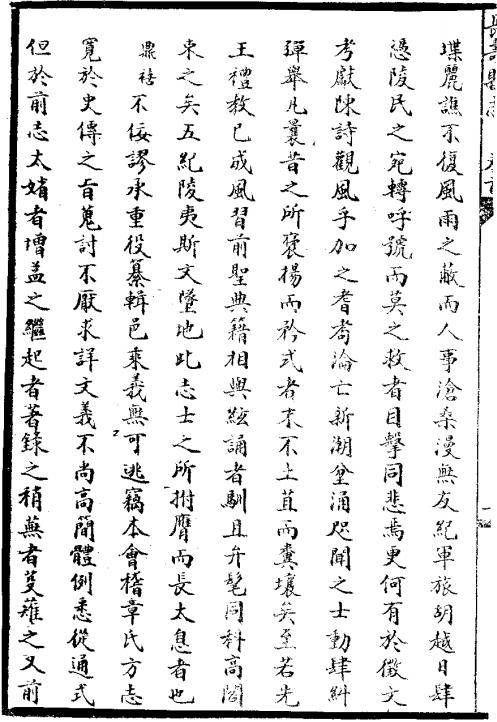 堞麗譙不復風雨之蔽而人事滄桑漫無友紀軍旅胡越日肆
憑陵民之宛轉呼號而莫之救者目擊同悲焉更何有於徵文
考獻陳詩觀風乎加之耆耇淪亡新潮坌涌咫聞之士動肆糾
彈舉凡曩昔之所褒揚而矜式者末不土苴而糞壤矣至若先
王禮教已成風習前聖典籍相與絃誦者馴且弁髦同科高閣
束之矣五紀陵夷斯文墜地此志士之所拊膺而長太息者也
鼎禧不佞謬承重役纂輯邑乘義無可逃竊本會稽章氏方志
寬於史傳之旨蒐討不厭求詳文義不尚高簡體例悉從通式
但於前志太媘者增益之繼起者著錄之稍蕪者芟薙之又前
長壽縣志